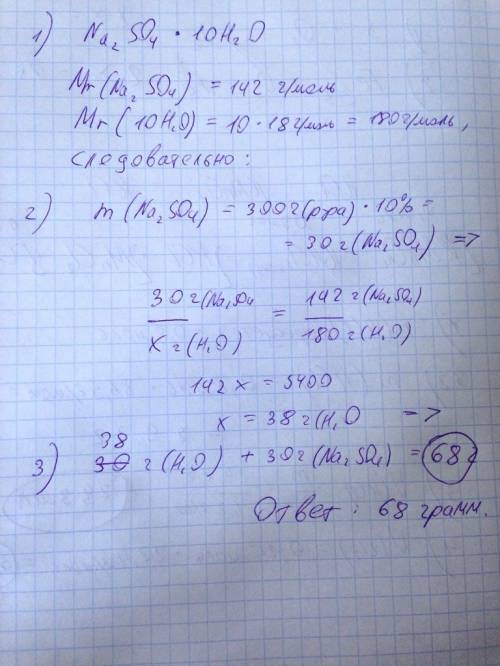 1) Na₂SO₄ · 10H₂O
Mr(Na₂SO₄) = 142 г/моль
Mr(10H₂O) = 10·18 г/моль = 180 г/моль,
следовательно:
2) m(Na₂SO₄) = 300 г(р-ра) · 10% =
= 30 г(Na₂SO₄) =>
30 г(Na₂SO₄ / x г(H₂O) = 142 г(Na₂SO₄) / 180 г(H₂O)
142 x = 5400
x = 38 г(H₂O —>
38
3) 30 г(H₂O) + 30 г(Na₂SO₄) = 68 г
Ответ: 68 грамм.